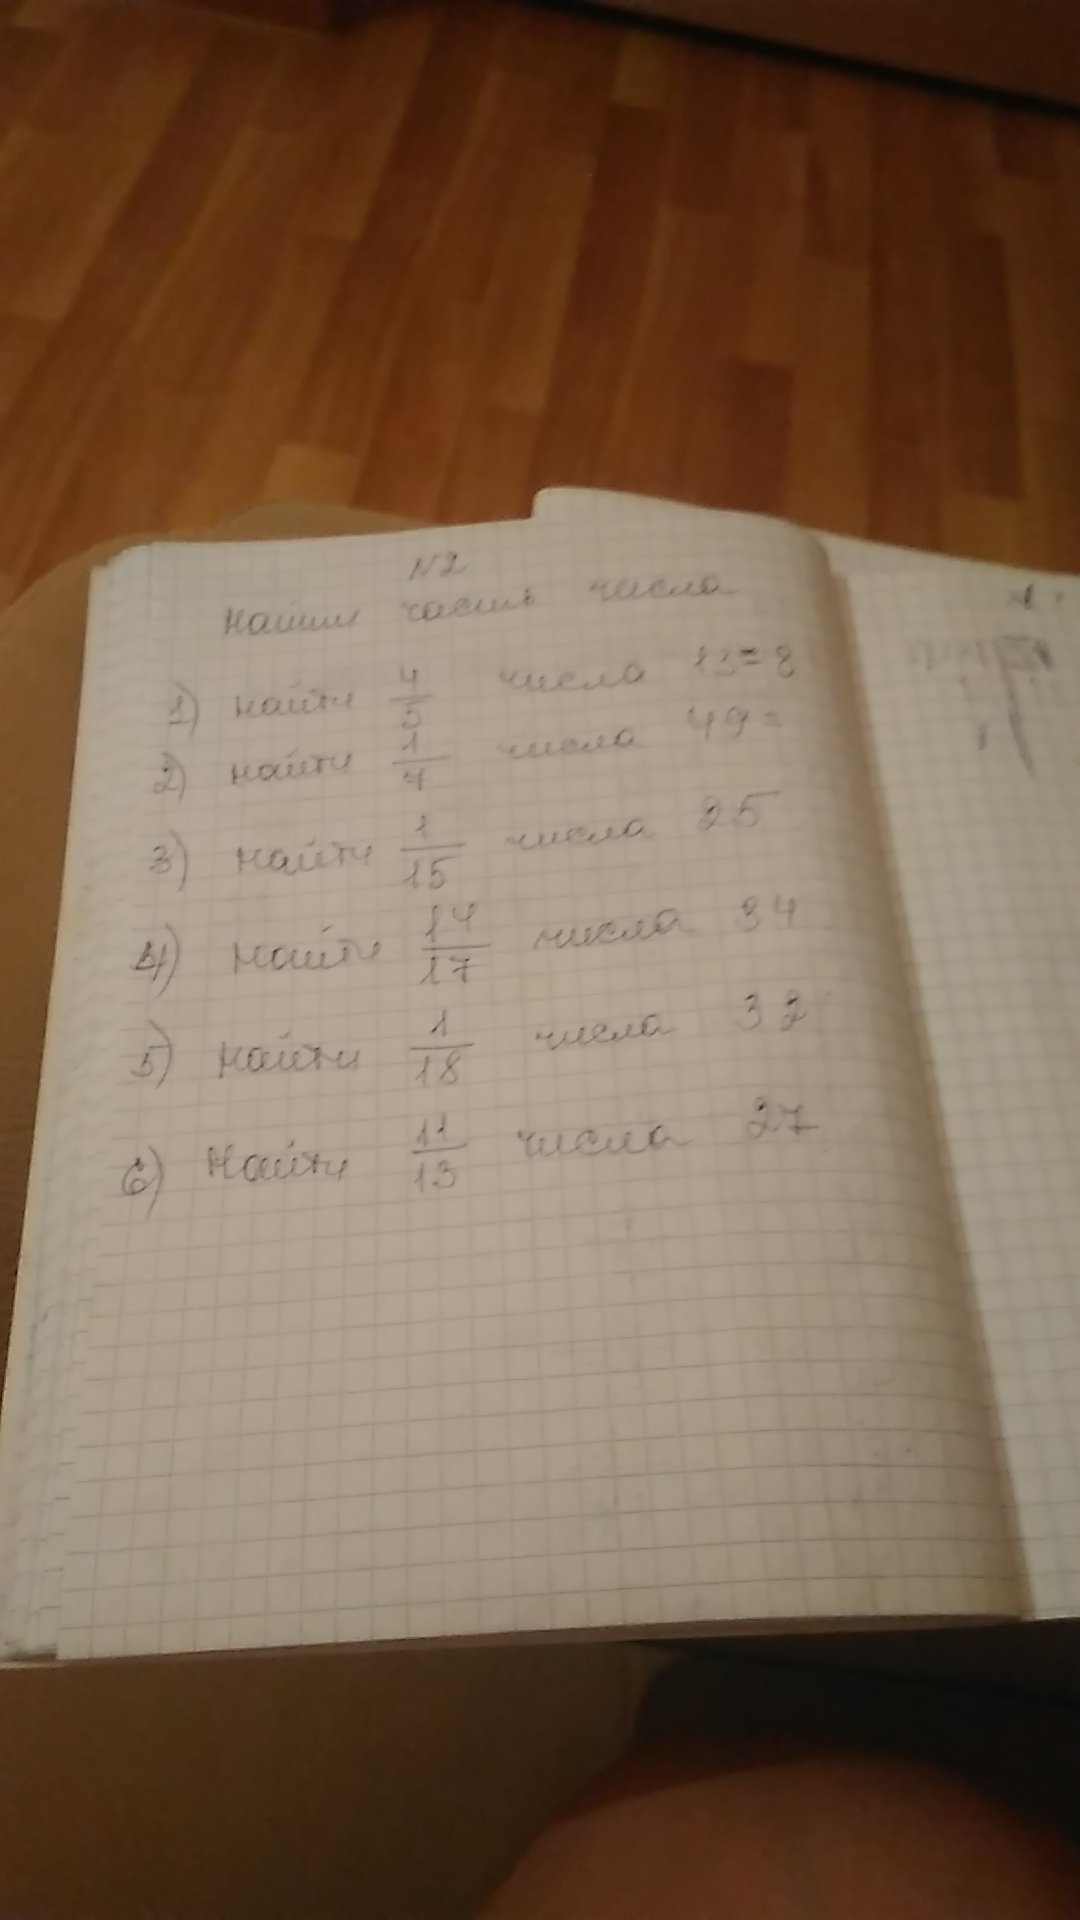 N2
Найти часть числа
1) найти 4/5 числа 13=8
2) найти 1/7 числа 49=
3) найти 1/15 числа 25
4) найти 14/17 числа 34
5) найти 1/18 числа 32
6) Найти 11/13 числа 27